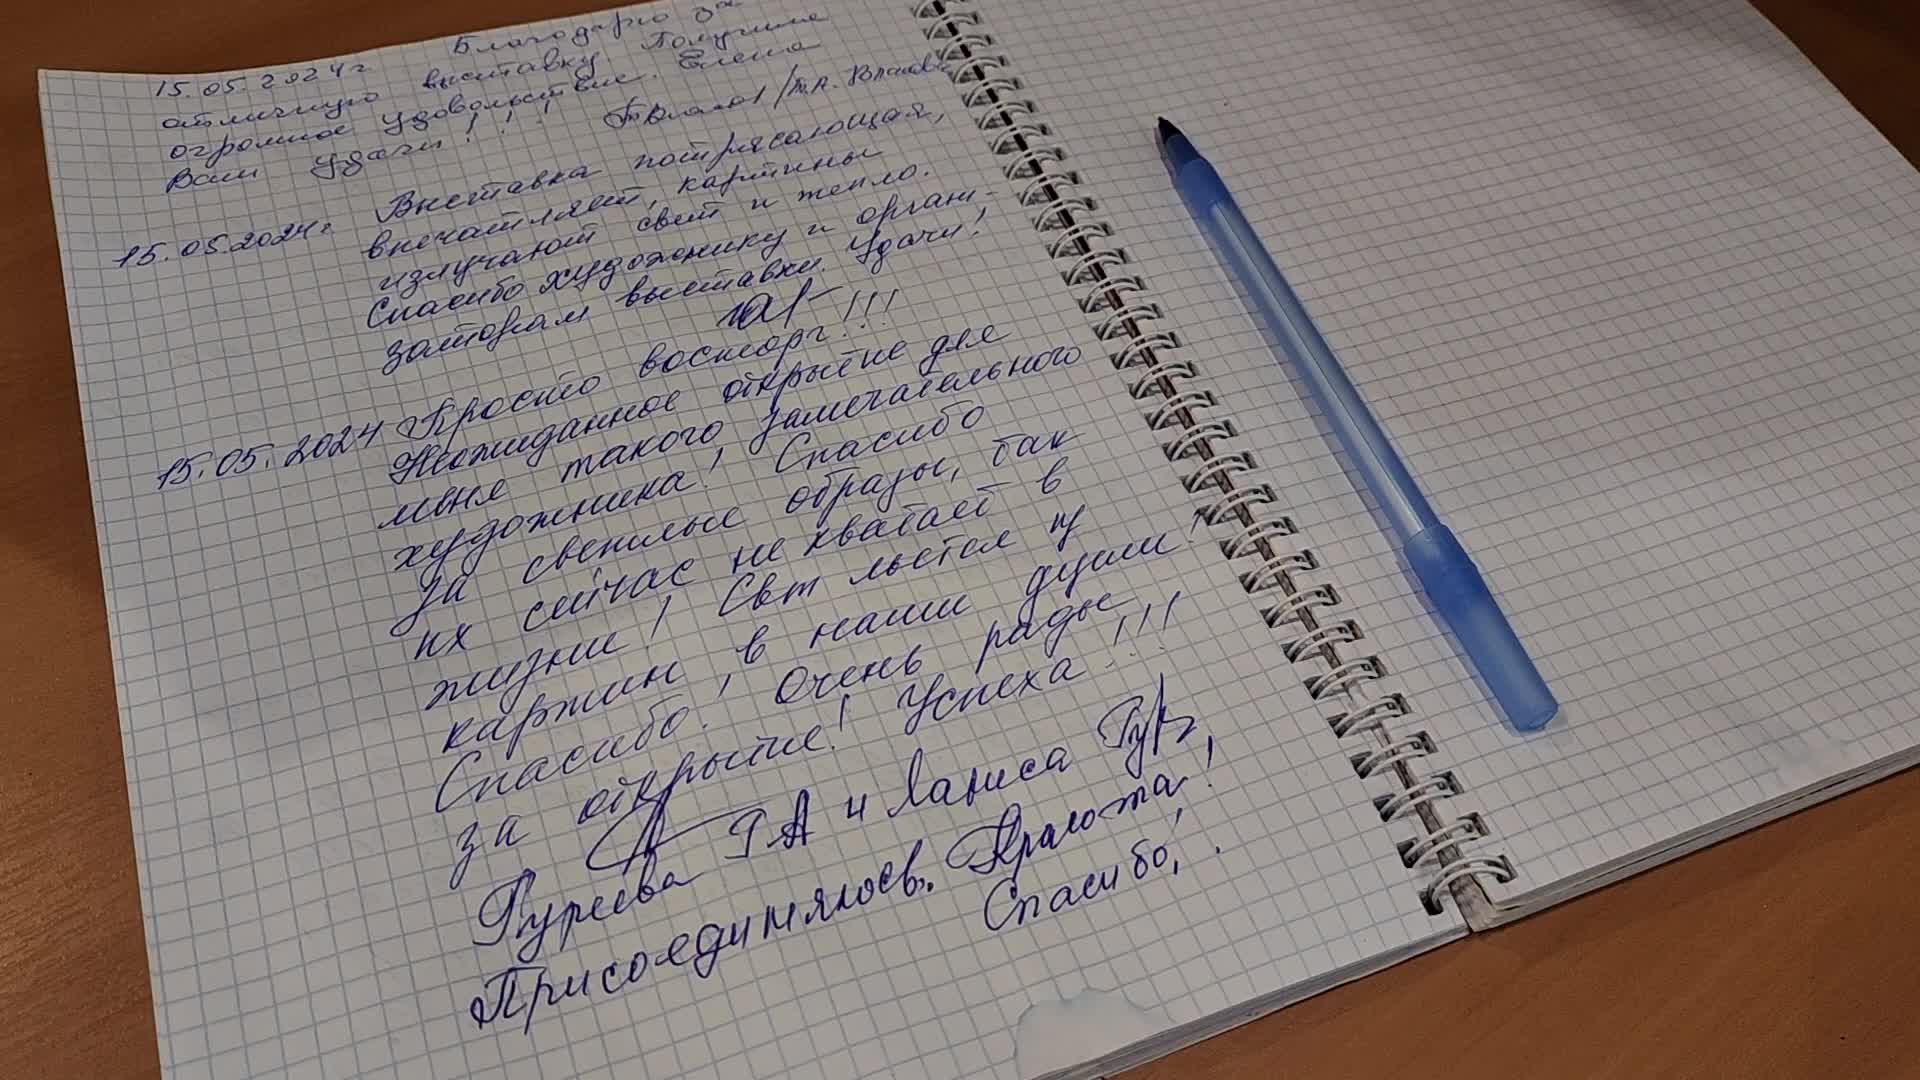 15.05.2024г. Благодарю за
отличную выставку. Получили
огромное удовольствие.
Вам удачи!!!
15.05.2024г. Выставка потрясающая,
впечатляет, картины
излучают свет и тепло.
Спасибо художнику и органи-
заторам выставки. Удачи!
15.05.2024 Просто восторг!!!
Неожиданное открытие для
меня такого замечательного
художника! Спасибо
за светлые образы, так
их сейчас не хватает в
жизни! Свет льется из
картин в наши души!
Спасибо! Очень рады
за открытие! Успеха!!!
РА и Лариса
Присоединяюсь. Красота!
Спасибо!